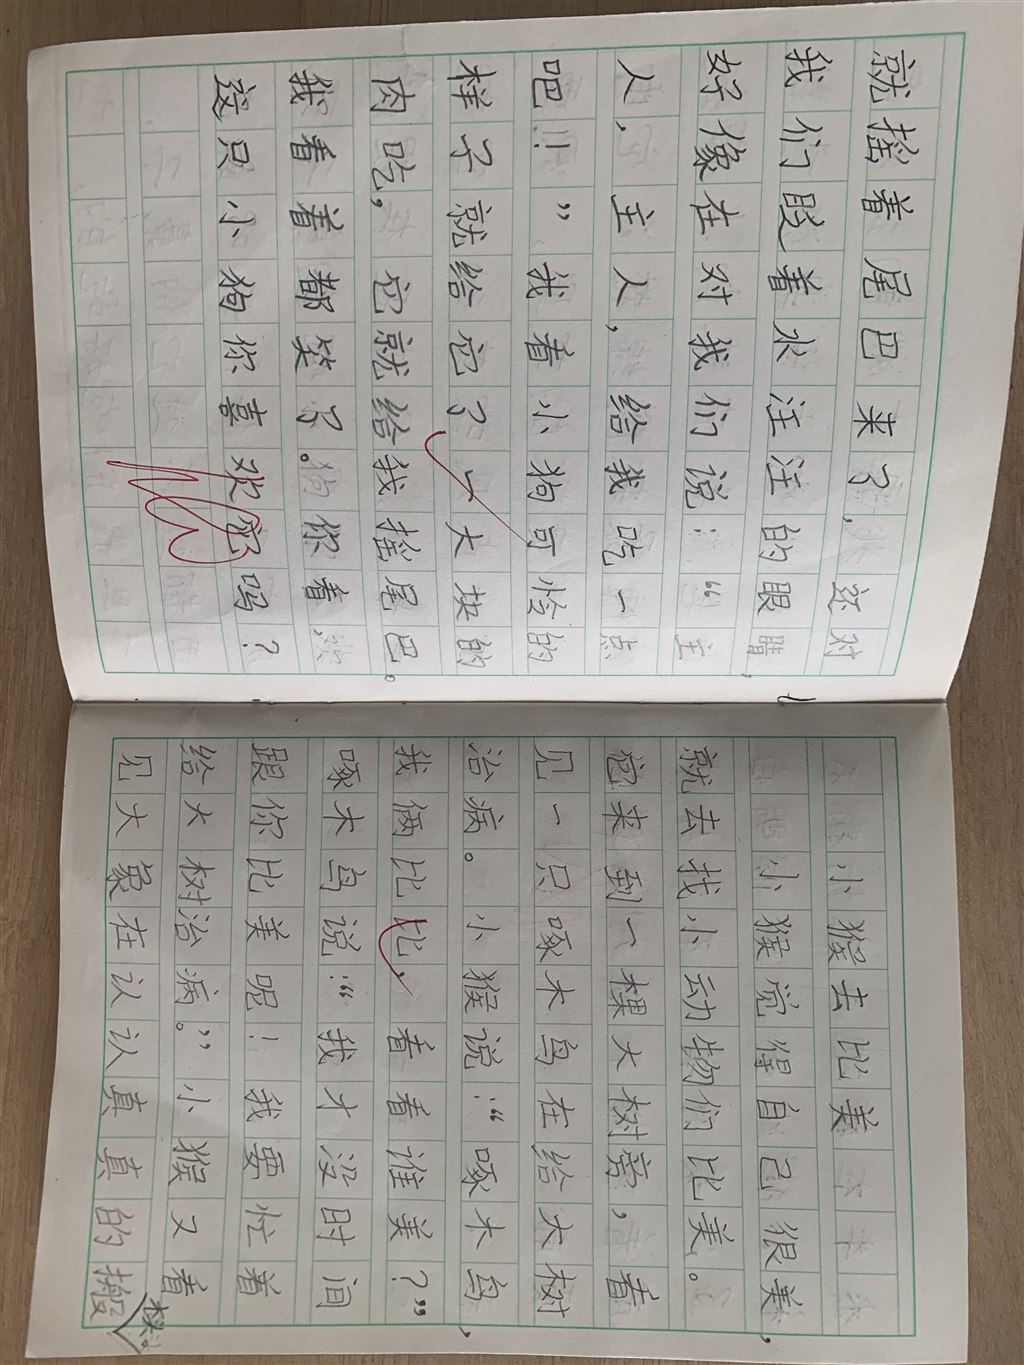 就摇着尾巴来了，这对
我们眨着水汪汪的眼睛，
好像在对我们说：“主
人，主人，给我吃一点
吧！”我看小狗可怜的
样子就给它了一大块的
肉吃，它就给我摇尾巴。
我看着都笑了。你看
这只小狗你喜欢它吗？
小猴去比美
小猴觉得自己很美，
就去找小动物们比美。
它来到一棵大树旁，看
见一只啄木鸟在给大树
治病。小猴说：“啄木鸟，
我俩比比，看看谁美？”
啄木鸟说：“我才没时间
跟你比美呢！我要忙着
给大树治病。”小猴又看
见大象在认认真真的搬